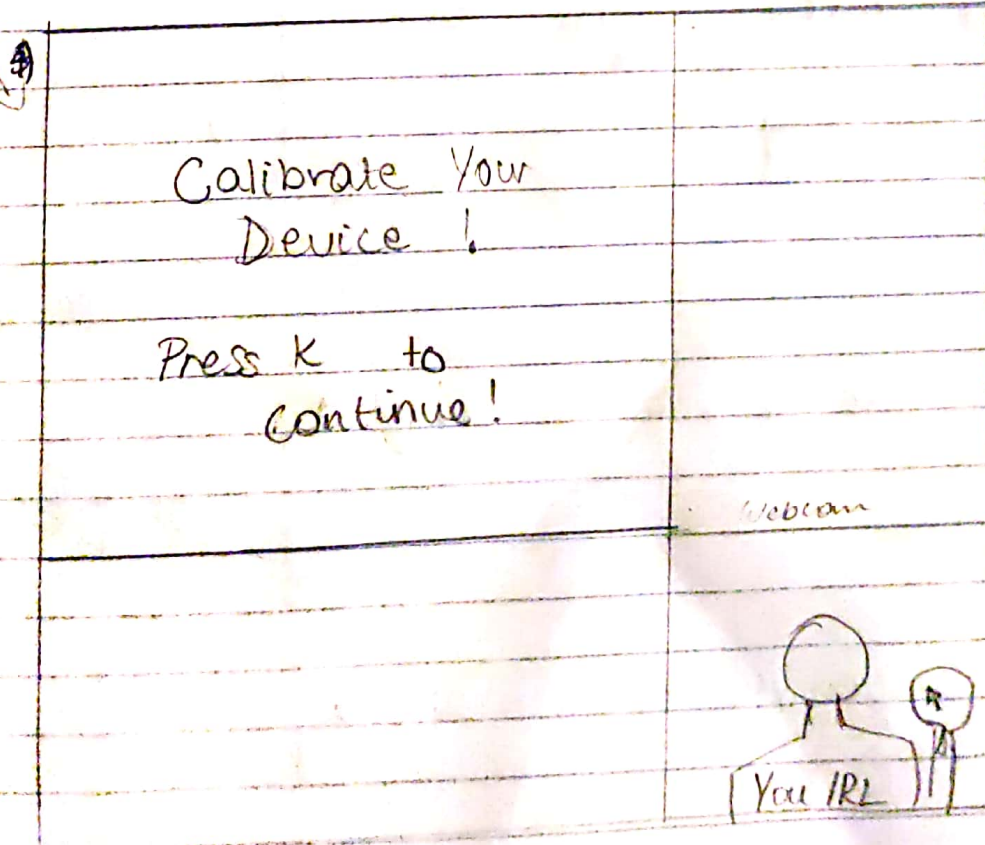 Calibrate Your
Device !
Press K to
continue!
Webcam
You IRL